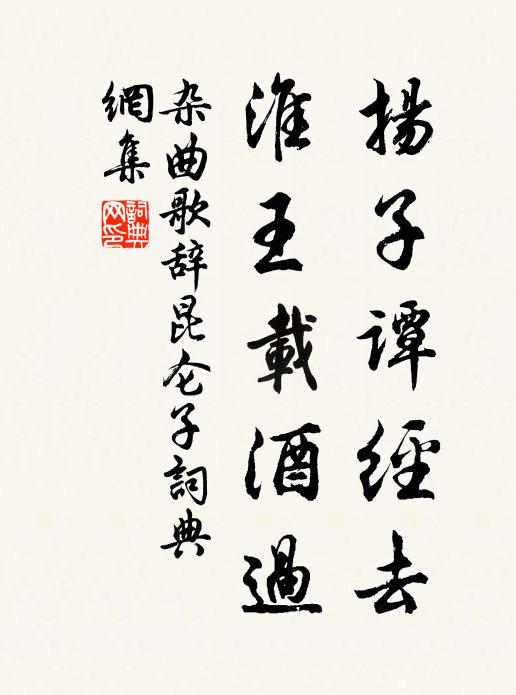 揚子譚經去
淮王載酒過
杂曲歌辞昆仑子詞典
網集
詞典網印